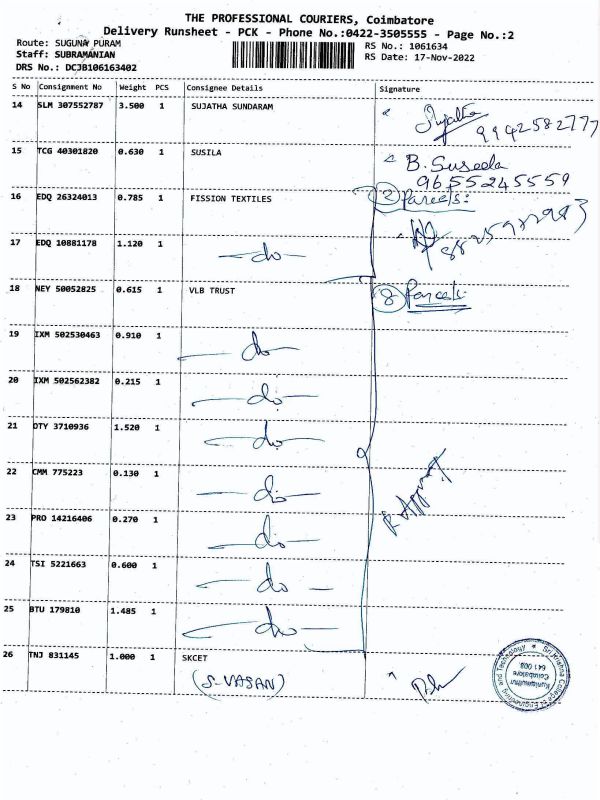 THE PROFESSIONAL COURIERS, Coimbatore
Delivery Runsheet - PCK - Phone No.:0422-3505555 - Page No.:2
Route: SUGUNA PURAM
RS No.: 1061634
Staff: SUBRAMANIAN
RS Date: 17-Nov-2022
DRS No.: DCJB106163402
S No Consignment No Weight PCS Consignee Details Signature
14 SLM 307552787 3.500 1 SUJATHA SUNDARAM Sujatha
9942582777
15 TCG 40301820 0.630 1 SUSILA B. Suseela
9655245559
16 EDQ 26324013 0.785 1 FISSION TEXTILES (2) Parcels:
17 EDQ 10881178 1.120 1 — do —
18 NEY 50052825 0.615 1 VLB TRUST (8) Parcels
19 IXM 502530463 0.910 1 — do —
20 IXM 502562382 0.215 1 — do —
21 OTY 3710936 1.520 1 — do —
22 CMM 775223 0.130 1 — do —
23 PRO 14216406 0.270 1 — do —
24 TSI 5221663 0.600 1 — do —
25 BTU 179810 1.485 1 — do —
26 TNJ 831145 1.000 1 SKCET
(S. VASAN)
Sri Krishna College of Engineering and Technology
Kuniamuthur
Coimbatore
641 008